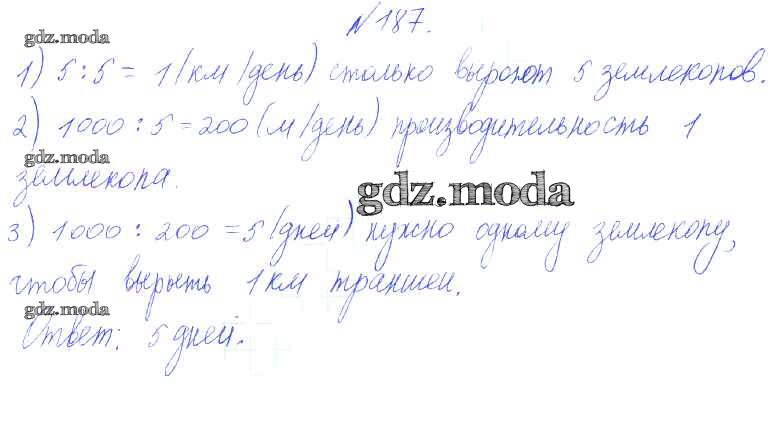 №187.
gdz.moda
1) 5 : 5 = 1 (км/день) столько выроют 5 землекопов.
2) 1000 : 5 = 200 (м/день) производительность 1
gdz.moda
землекопа.
gdz.moda
3) 1000 : 200 = 5 (дней) нужно одному землекопу,
чтобы вырыть 1 км траншеи.
gdz.moda
Ответ: 5 дней.